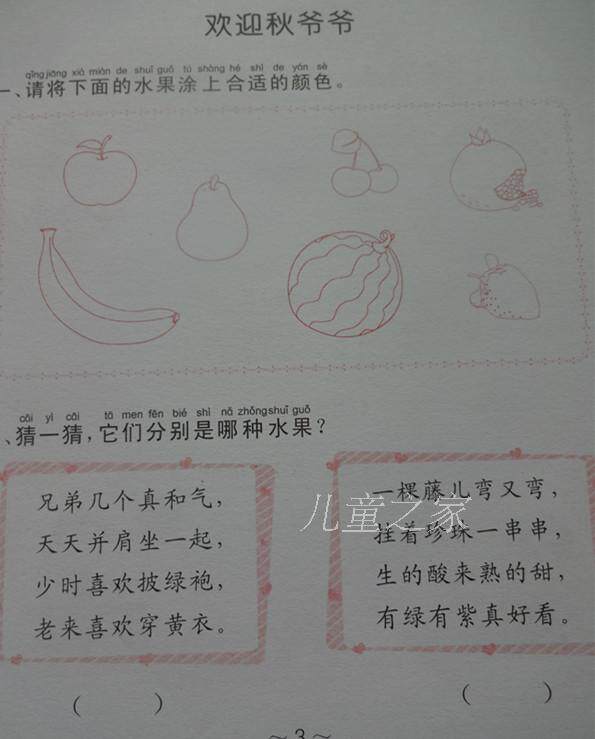 欢迎秋爷爷
qǐng jiāng xià miàn de shuǐ guǒ tú shàng hé shì de yán sè
一、请将下面的水果涂上合适的颜色。
cāi yì cāi tā men fēn bié shì nǎ zhǒng shuǐ guǒ
、猜一猜，它们分别是哪种水果？
兄弟几个真和气，
天天并肩坐一起，
少时喜欢披绿袍，
老来喜欢穿黄衣。
( )
一棵藤儿弯又弯，
挂着珍珠一串串，
生的酸来熟的甜，
有绿有紫真好看。
( )
儿童之家
～3～